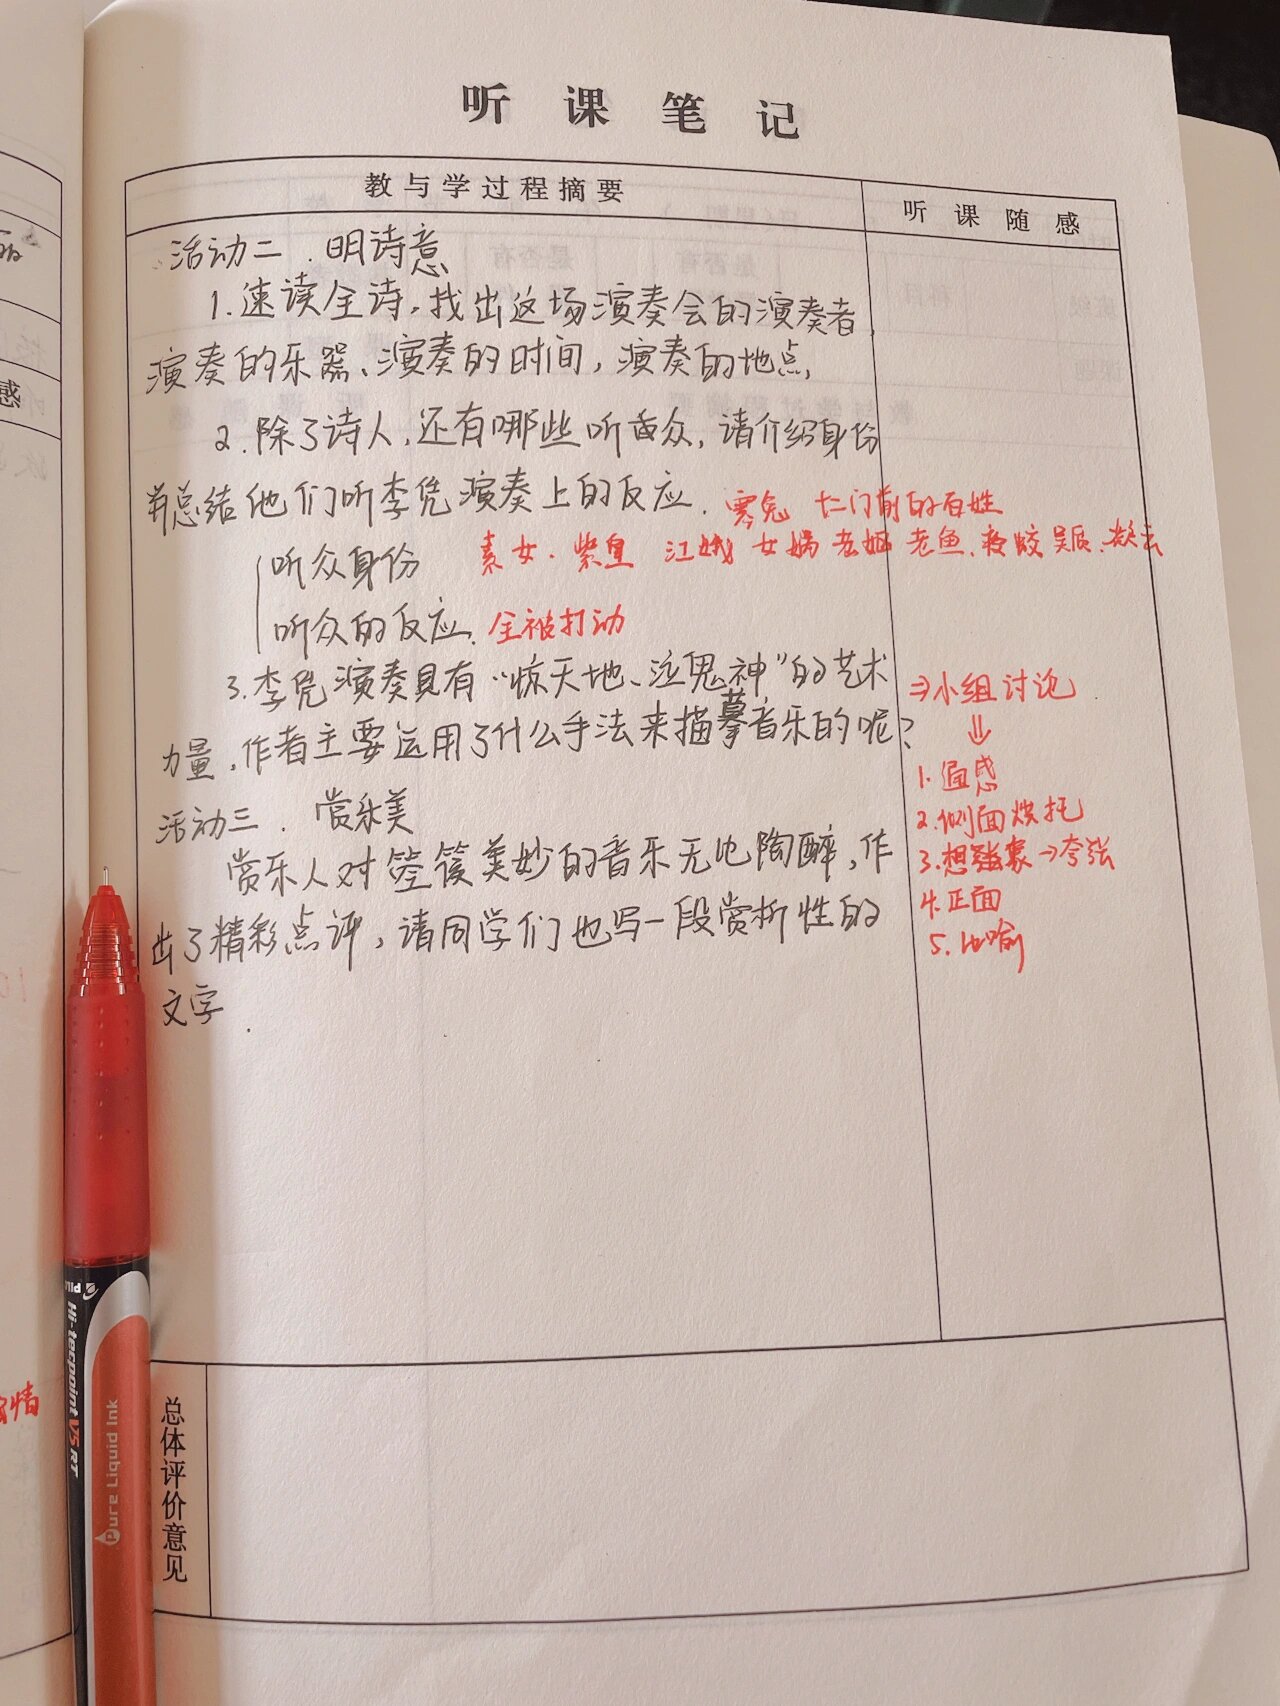 听课笔记
教与学过程摘要
听课随感
活动二．明诗意
1.速读全诗，找出这场演奏会的演奏者，
演奏的乐器、演奏的时间，演奏的地点，
2.除了诗人，还有哪些听众，请介绍身份
并总结他们听李凭演奏上的反应．
寒兔 十二门前的百姓
听众身份 素女．紫皇 江娥 女娲 老妪 老鱼、瘦蛟 吴质、
听众的反应．全被打动
3.李凭演奏具有“惊天地、泣鬼神”的艺术
力量，作者主要运用了什么手法来描摹音乐的呢？
活动三．赏乐美
赏乐人对箜篌美妙的音乐无比陶醉，作
出了精彩点评，请同学们也写一段赏析性的
文字．
⇒小组讨论
⇓
1.通感
2.侧面烘托
3.想象→夸张
4.正面
5.比喻
总体评价意见
感
Hi-tecpoint V5 RT
Pure Liquid Ink